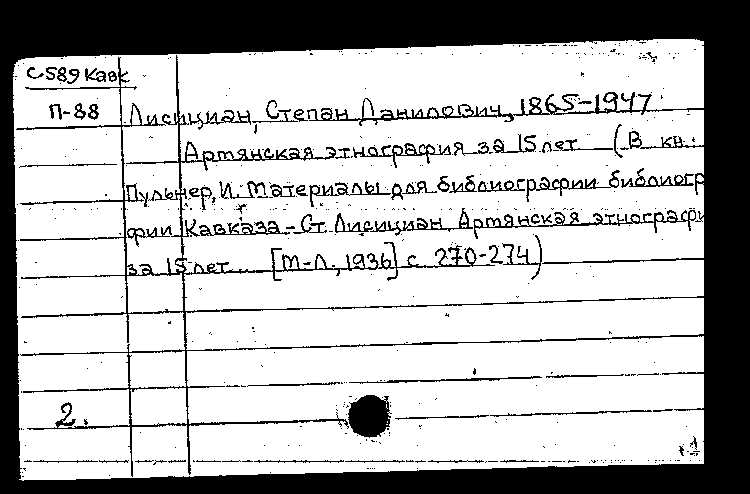 С589Кавк
П-88
Лисициан, Степан Данилович, 1865-1947
Артянская этнография за 15 лет (В кн.:
Пульнер, И. Материалы для библиографии библиогр
фии Кавказа - Ст. Лисициан, Артянская этнографи
за 15 лет... [М-Л., 1936] с 270-274)
2.